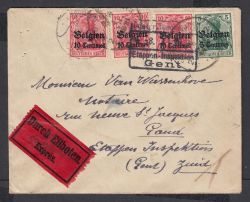 Belgien
10 Centimes
Belgien
10 Centimes
Belgien
10 Centimes
Belgien
10 Centimes
Belgien
5 Centimes
Etappen-Inspektion
Gent
Monsieur Van Waesenhove
Notaire
rue neuve St Jacques
Gand
Etappen Inspektion
(Gent) Zuid
Durch Eilboten
Exprès